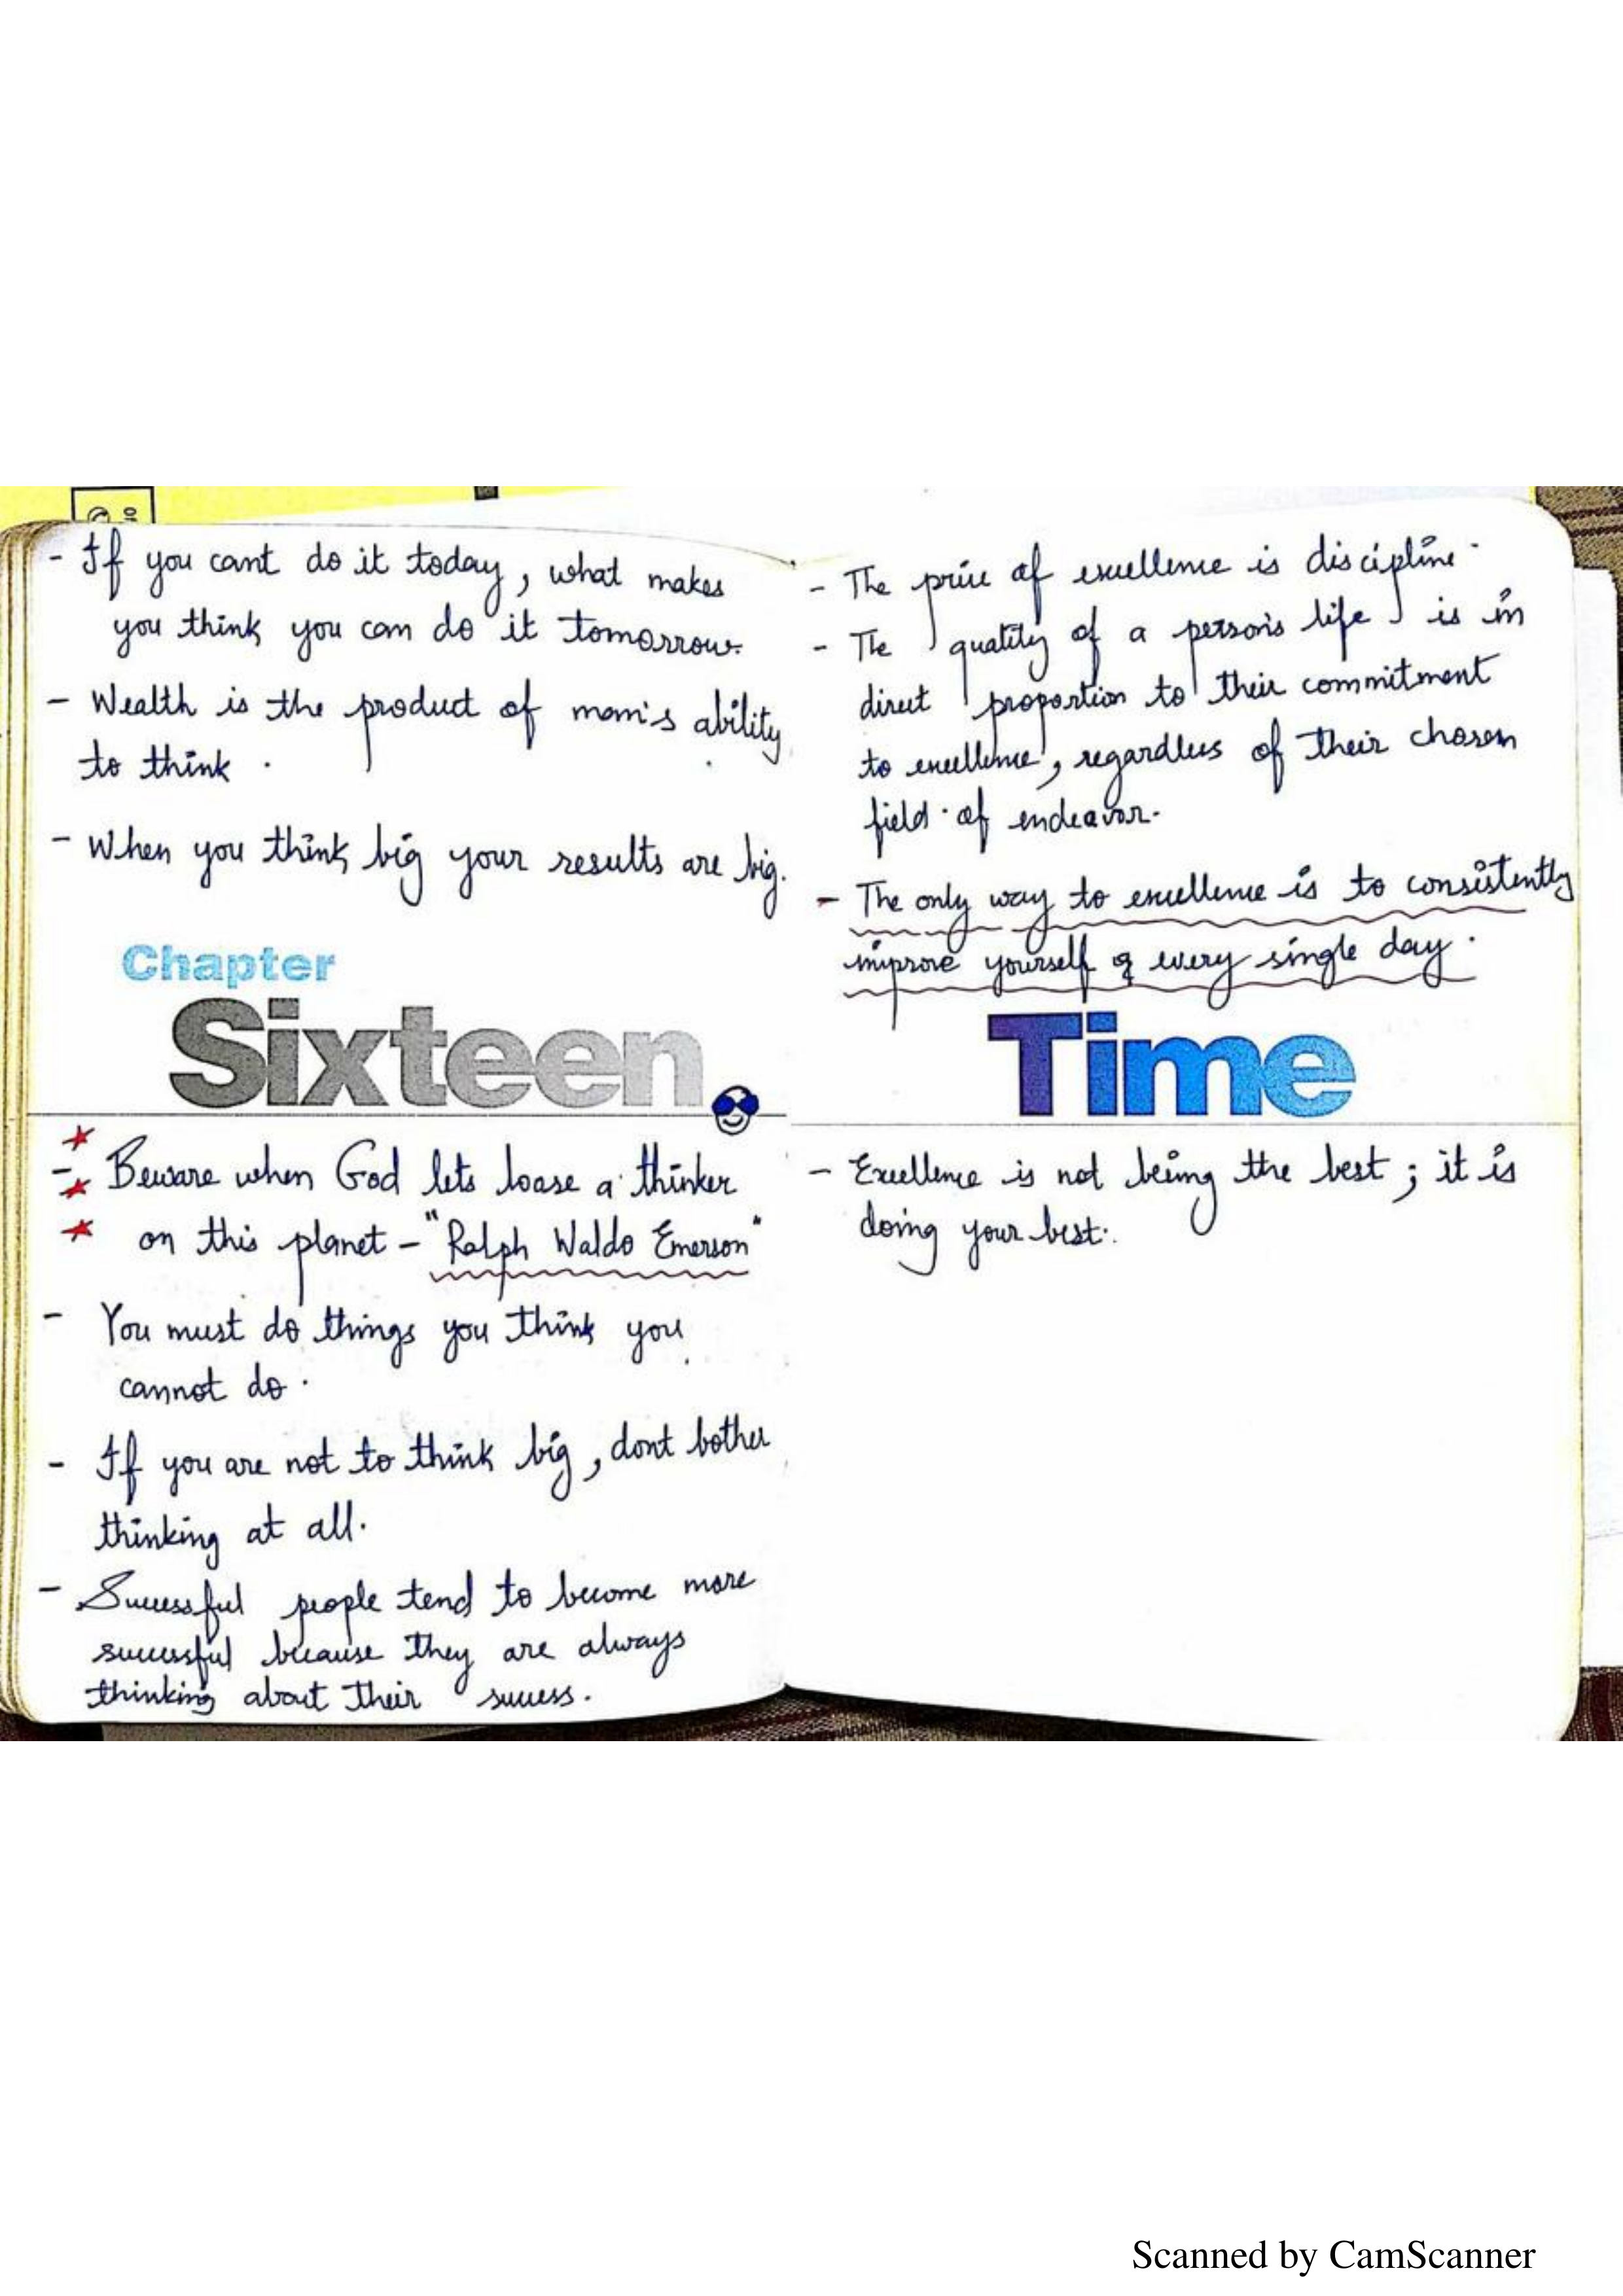 - If you cant do it today, what makes
you think you can do it tomorrow.
- Wealth is the product of man's ability
to think.
- When you think big your results are big.
Chapter
Sixteen
- Beware when God lets loase a thinker
on this planet - "Ralph Waldo Emerson"
- You must do things you think you
cannot do.
- If you are not to think big, dont bother
thinking at all.
- Successful people tend to become more
successful because they are always
thinking about their success.
- The price of excellence is discipline.
- The quality of a person's life is in
direct proportion to their commitment
to excellence, regardless of their chosen
field of endeavor.
- The only way to excellence is to consistently
improve yourself every single day.
Time
- Excellence is not being the best; it is
doing your best.
Scanned by CamScanner